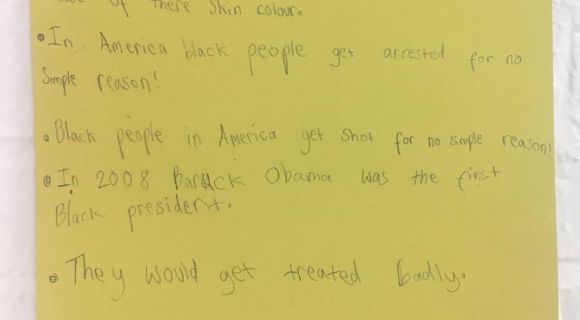 of there Skin colour.
• In America black people get arrested for no
Simple reason!
• Black people in America get Shot for no simple reason!
• In 2008 Barack Obama was the first
Black president.
• They would get treated badly.